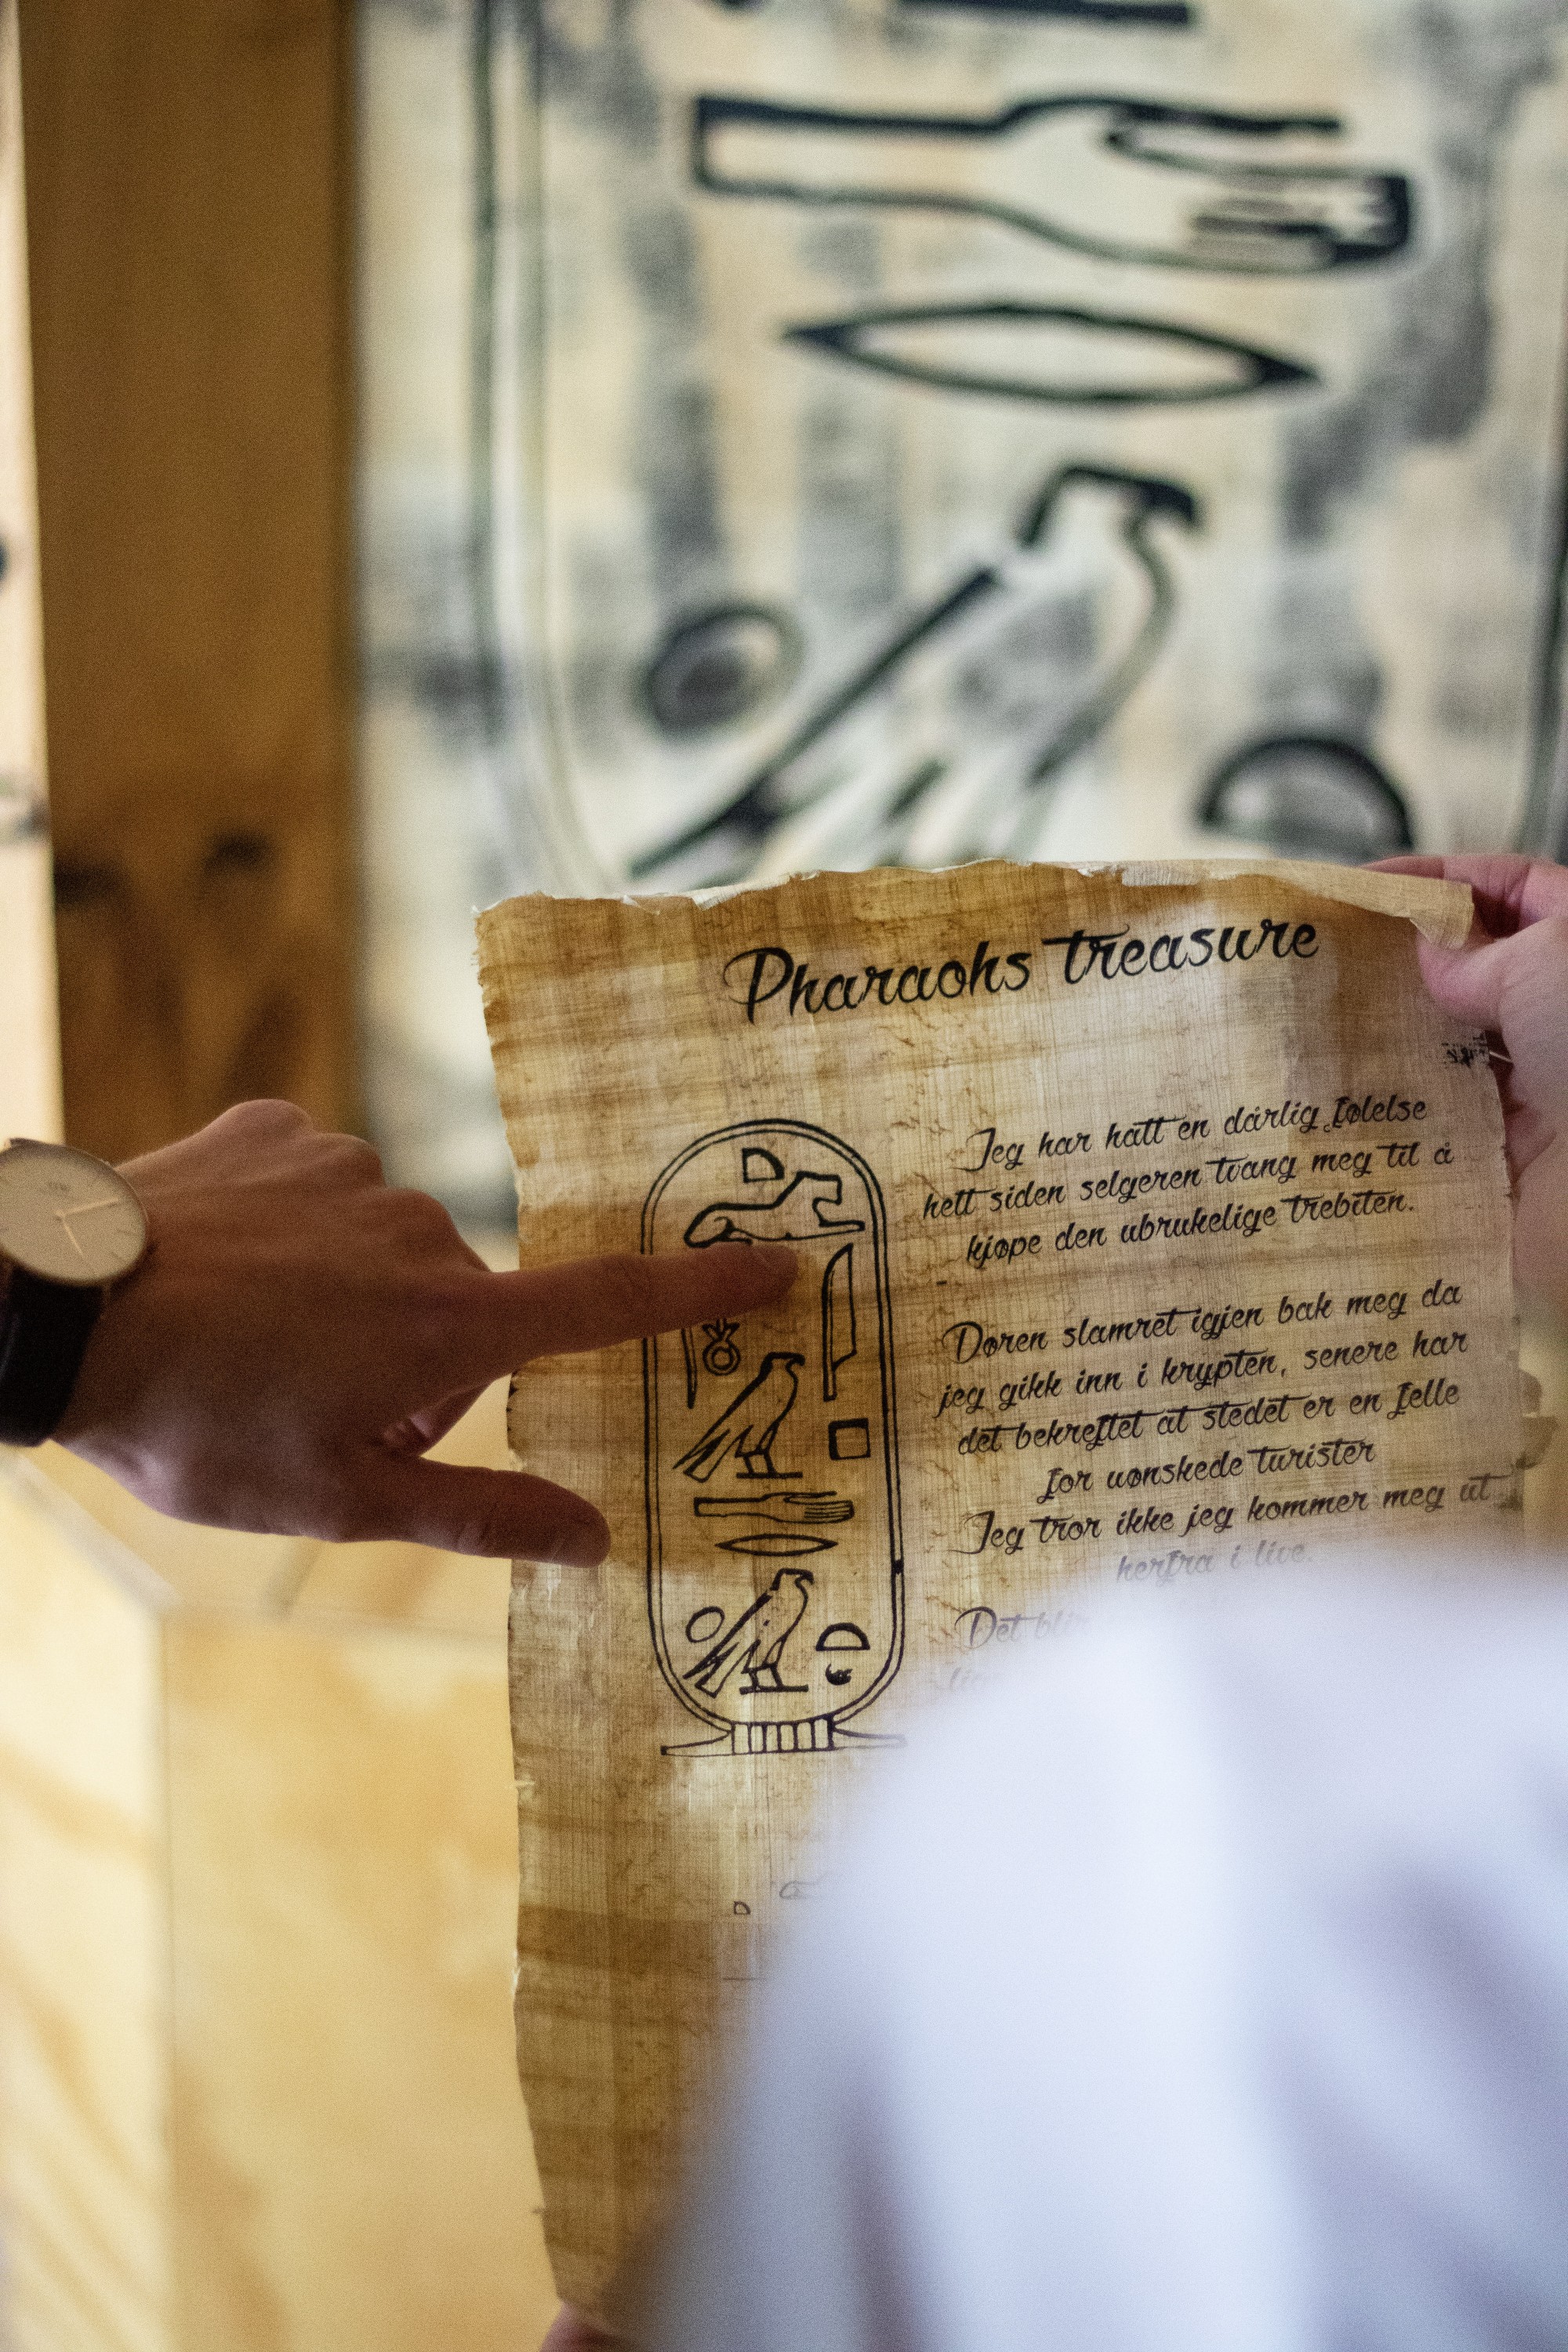 Pharaohs treasure
Jeg har hatt en dårlig følelse
helt siden selgeren tvang meg til å
kjøpe den ubrukelige trebiten.
Døren slamret igjen bak meg da
jeg gikk inn i krypten, senere har
det bekreftet at stedet er en felle
for uønskede turister
Jeg tror ikke jeg kommer meg ut
herfra i live.
Det